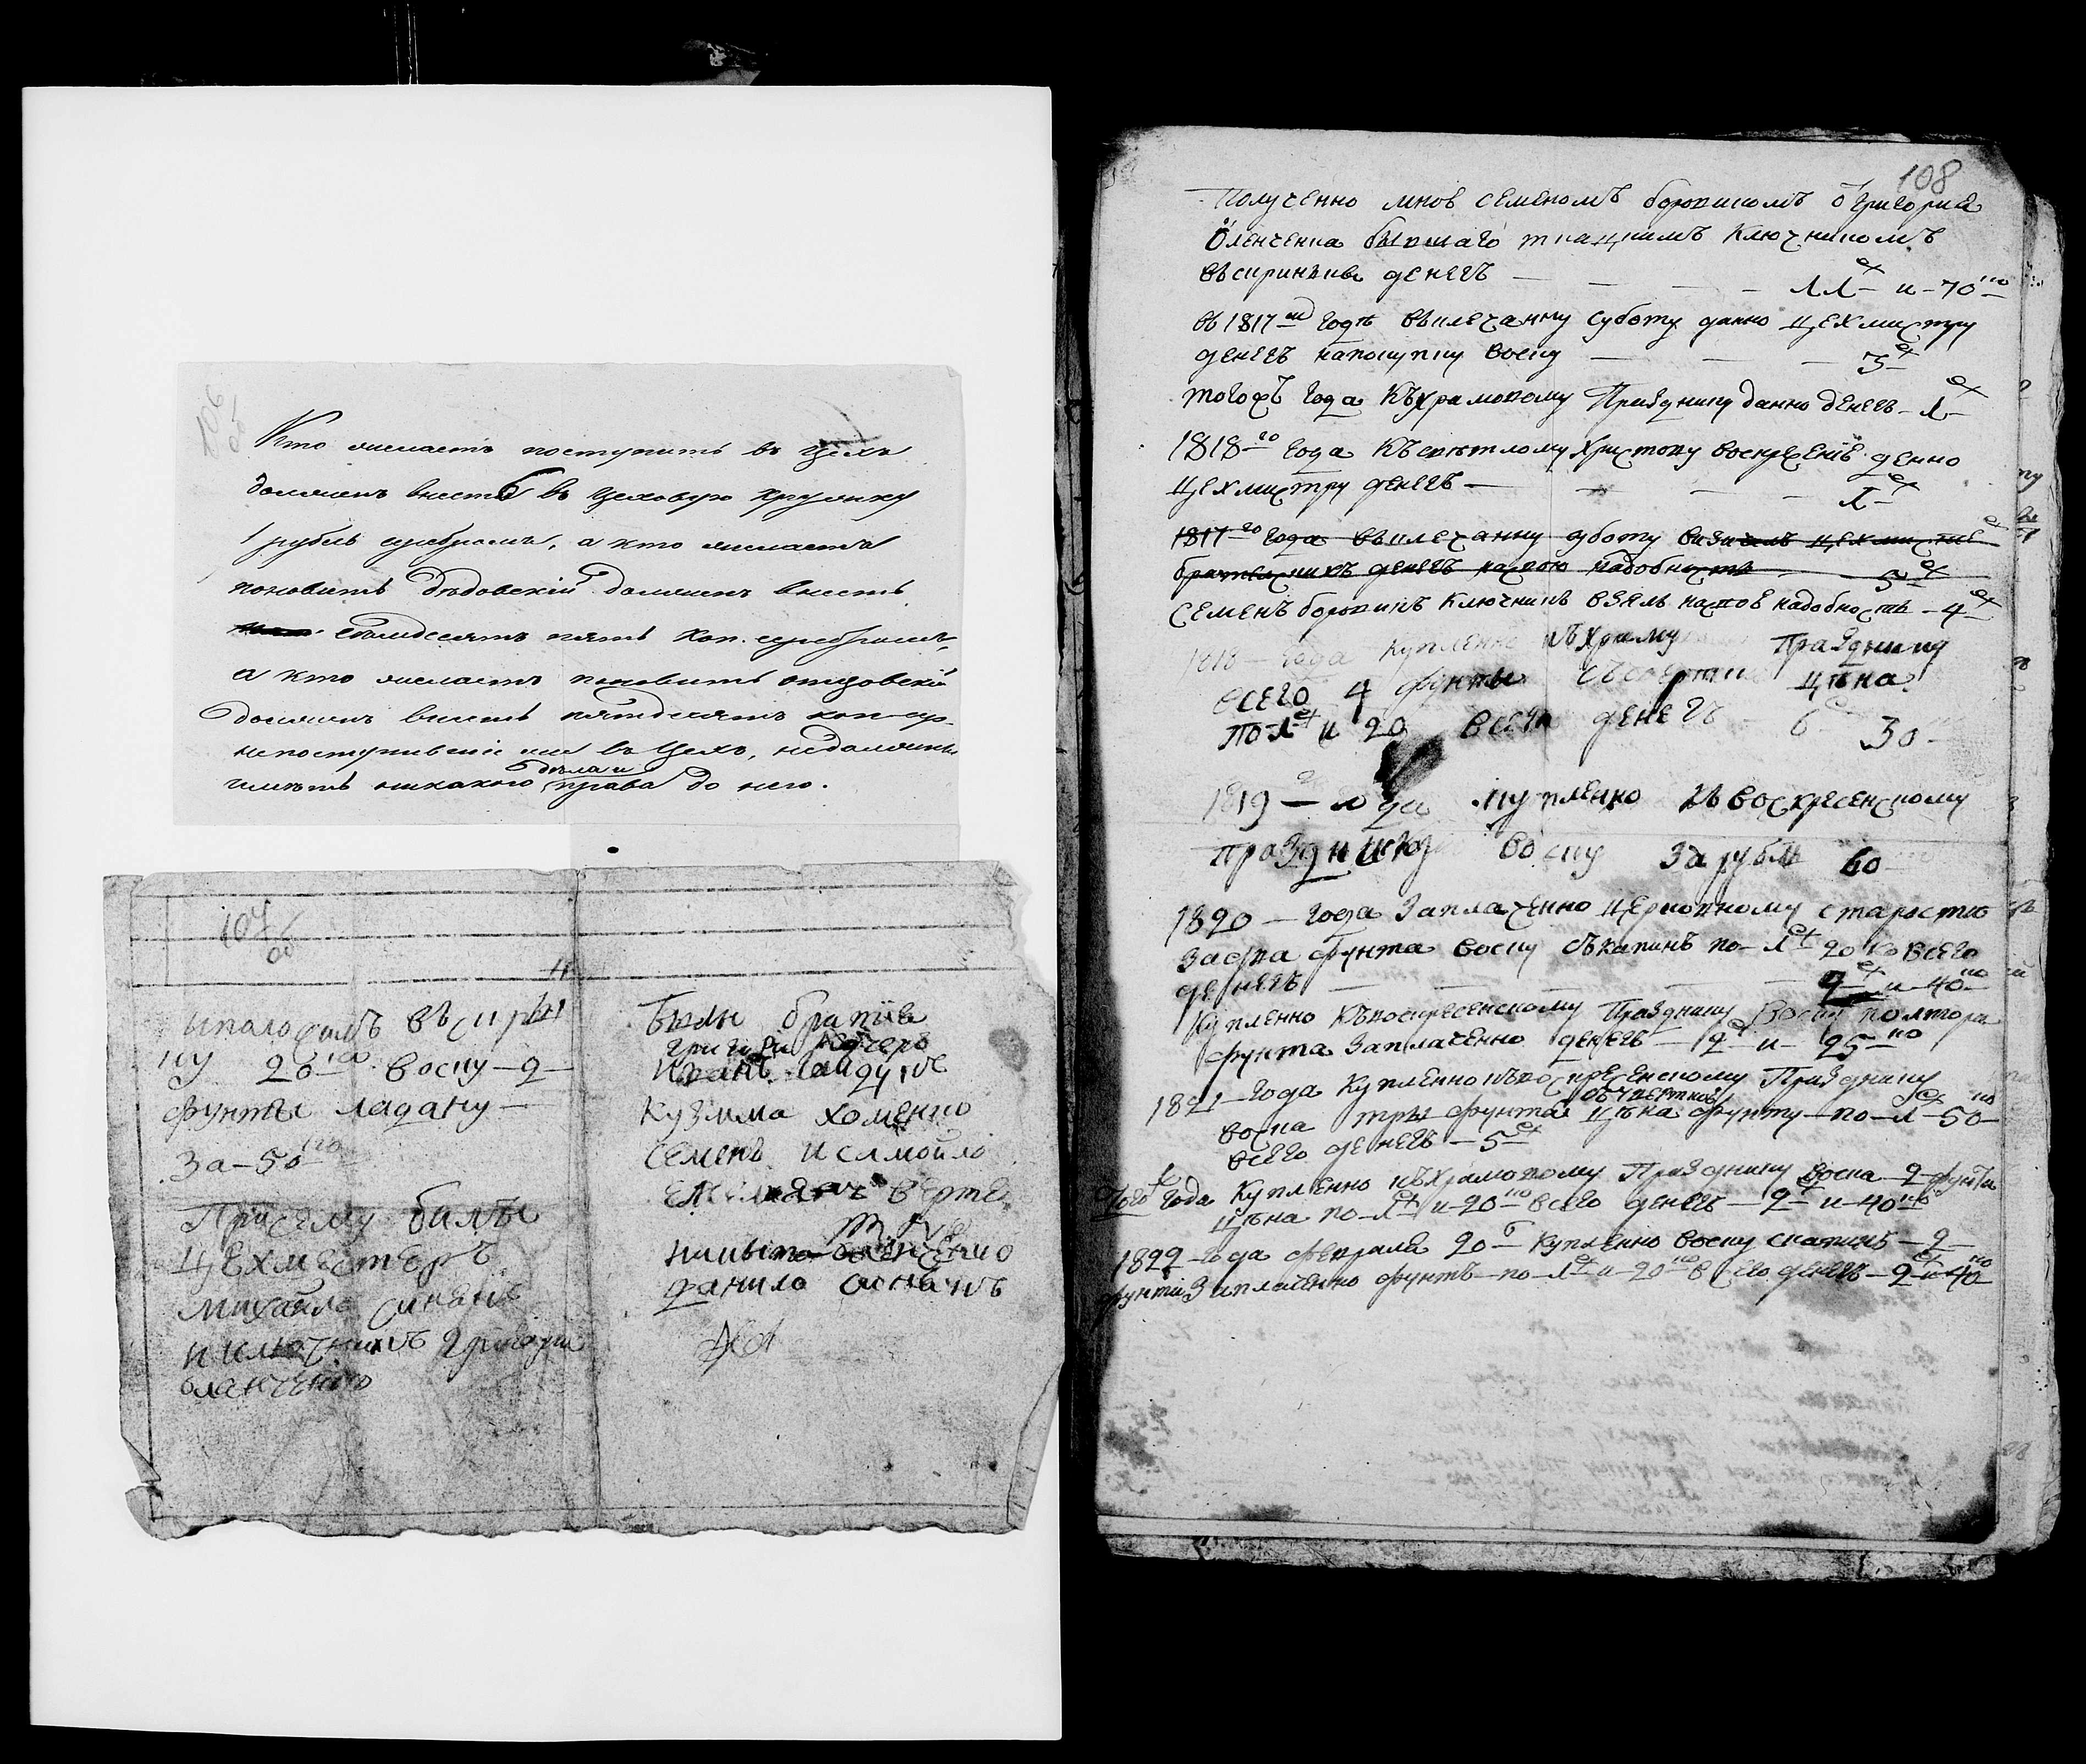 106
об
Кто желаетъ поступить въ Цехъ
долженъ внесть въ Цеховую Кружку
1 рубль серебромъ, а кто желаетъ
поновить дѣдовскій долженъ внесть
семдесятъ пять коп. серебромъ,
а кто желаетъ поновить отцовскій
долженъ внесть пятдесятъ коп сер.
непоступившіе же въ Цехъ, недолжны
дѣла и
имѣть никакого права до него.
107
об
иположилъ въскры
ну 20 ко воску 2
фунты ладану
За 50 ко
Присему былъ
Цехместеръ
Михайло
и ключникъ григори
оленченко
Были братіе
григори
Иванъ
Кузмма хоменко
Семенъ исамойло
верте
оленченко
данило
108
Полученно мнов семеномъ борвикомъ ѿ григориа
Оленченка бывшаго ткацкимъ Ключникомъ
въскринкв денегъ и 70 ко
въ 1817 м годѣ ввплечанну суботу данно цехмистру
денегъ напокупку воску 3
тогожъ года Къхрамовому Празднику данно денегъ 1
1818 го года Късвѣтлому Христову воскресенїе денно
Цехмистру денегъ 1
1817 го года ввплечанну суботу
братчикъ денегъ насвою надобность 5
Семенъ борвикъ Ключникъ взялъ насвоѣ надобность 4
1818 года Купленно къхраму Празднику
всего 4 фунты Цѣна
по 1 и 20 всего денегъ 6 30
1819 года купленно къвоскресенскому
празднику воску за рубль 60
1820 года Заплаченно церковному старостѣ
За два фунта воску по 1 20 ко всего
денегъ 2 и 40 ко
Купленно Къвоскресенскому Празднику Воску полтора
фунта Заплаченно денегъ 2 и 25 ко
1821 года Купленно къвоскресенскому Празднику
воска три фунта Цѣна фунту по 1 50 ко
всего денегъ 5
Того года Купленно къхрамовому Празднику воска 2 фунта
Цѣна по 1 и 20 ко всего денегъ 2 и 40 ко
1822 года февраля 20 Купленно воску 2
фунти Заплаченно фунтъ по 1 и 20 ко всего денегъ 2 и 40 ко